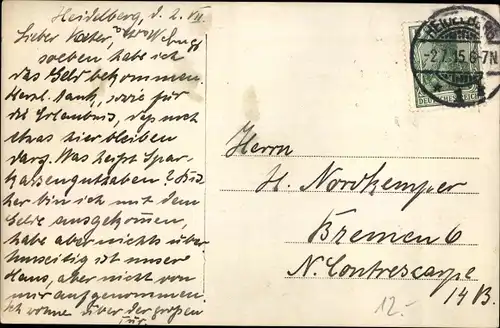 Heidelberg, d. 2. VII.
Lieber Vater,
soeben habe ich
das Geld bekommen.
Herzl. Dank, sowie für
die Erlaubnis, daß noch
etwas hier bleiben
darf. Was heißt Spar-
kassenguthaben? Bis-
her bin ich mit dem
Gelde ausgekommen,
habe aber nichts über.
Umseitig ist unser
Haus, aber nicht von
mir aufgenommen.
Ich wohne über der großen
Tür.
HEIDELBERG
-2.7.15.6-7N.
DEUTSCHES REICH
Herrn
H. Nordkemper
Bremen 6
N. Contrescarpe
14 B.
12.-